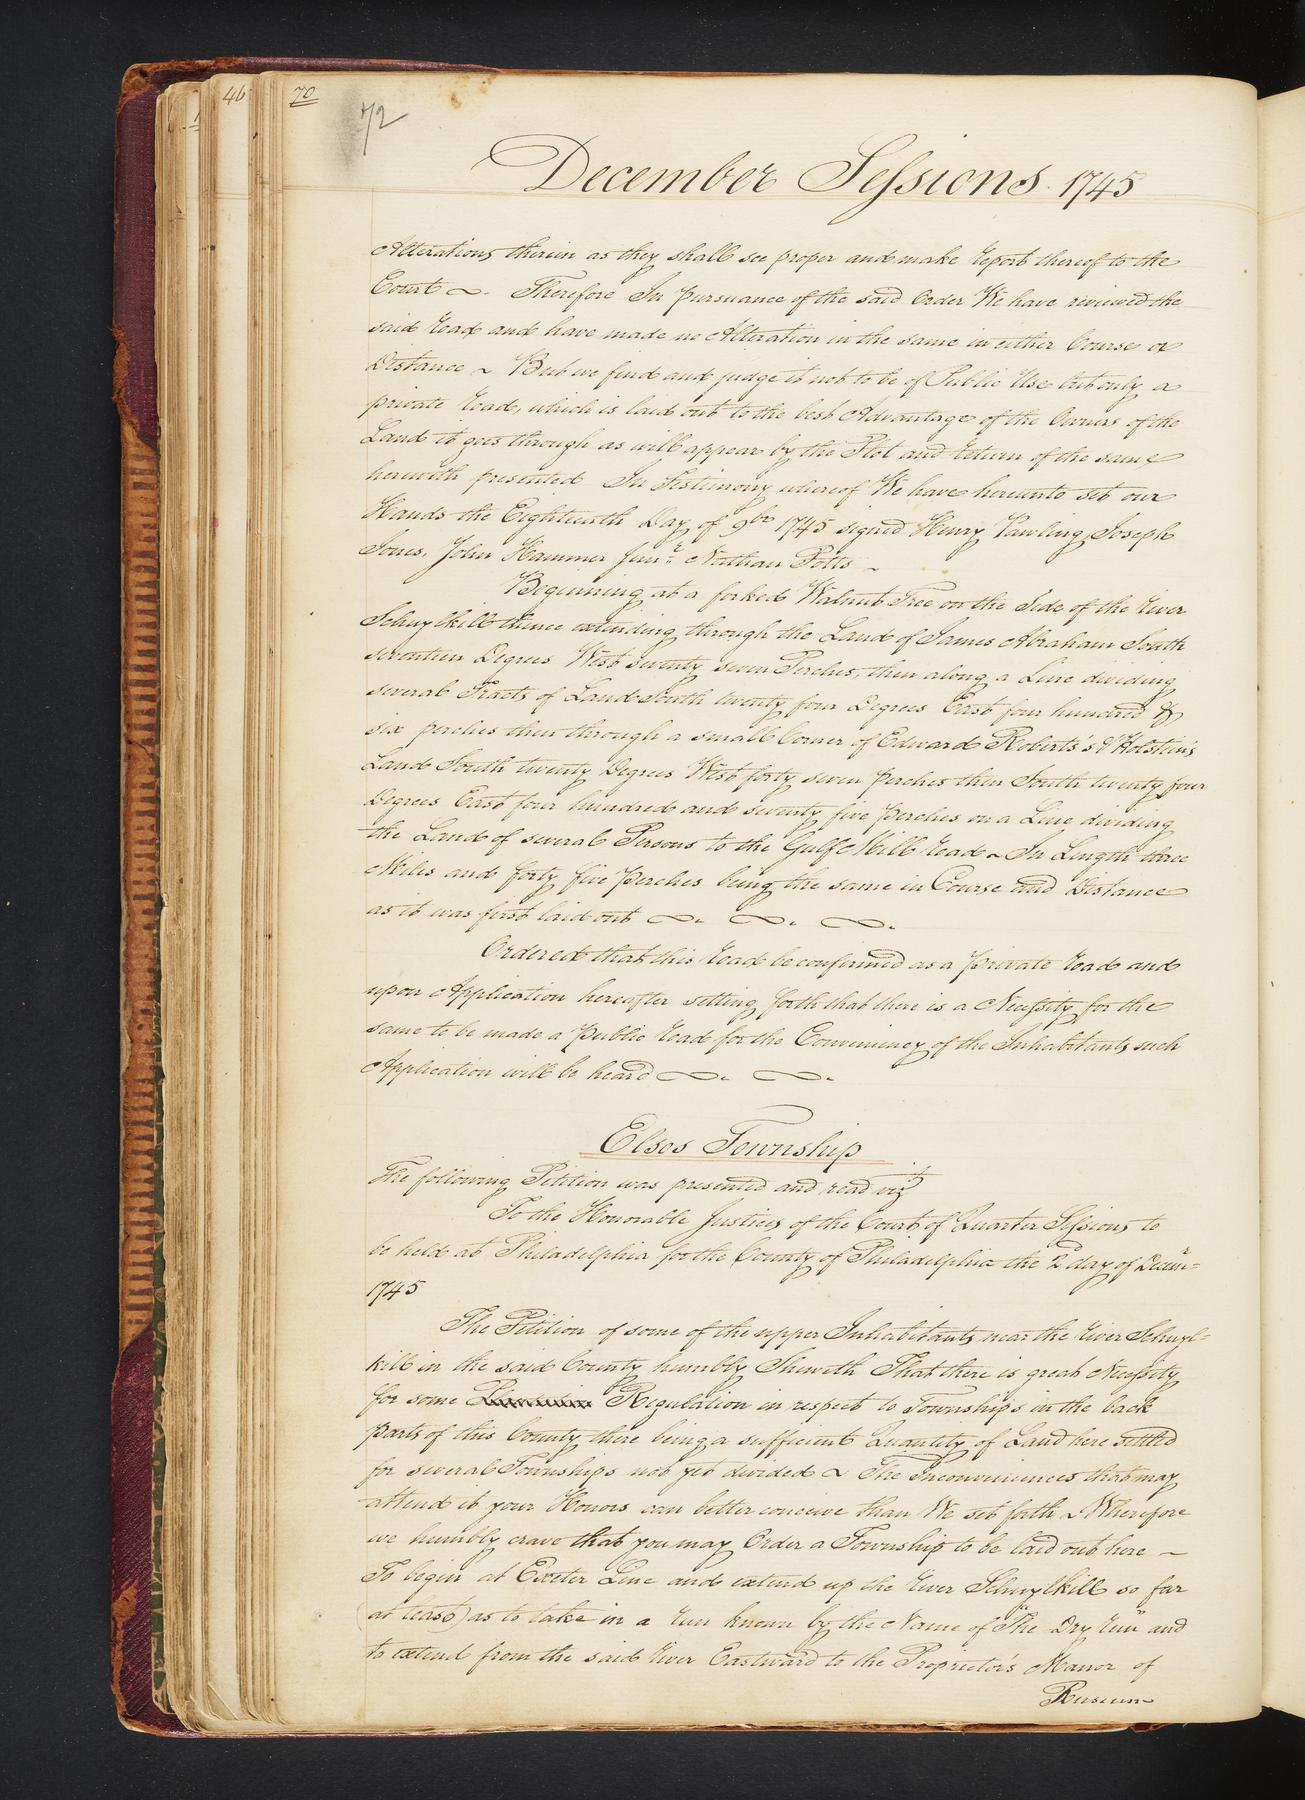 46
70
72
December Sessions 1745
Alterations therein as they shall see proper and make report thereof to the
Court ~. Therefore In pursuance of the said Order We have reviewed the
said road and have made no Alteration in the same in either Course or
Distance ~ But we find and judge it not to be of Public Use but only a
private road, which is laid out to the best Advantage of the Owners of the
Land it goes through as will appear by the Plot and return of the same
herewith presented In Testimony whereof We have hereunto set our
Hands the Eighteenth Day of 9br 1745 signed Henry Pawling, Joseph
Jones, John Hammer Junr Nathan Potts ~
Beginning at a forked Walnut Tree on the Side of the river
Schuylkill thence extending through the Land of James Abraham South
seventeen Degrees West seventy seven Perches, then along a Line dividing
several Tracts of Land South twenty four Degrees East four hundred &
six perches then through a small Corner of Edward Roberts's & Holstein's
Land South twenty Degrees West forty seven perches then South twenty four
Degrees East four hundred and seventy five perches on a Line dividing
the Land of several Persons to the Gulf Mill road ~ In Length three
Miles and forty five perches being the same in Course and Distance
as it was first laid out ~. ~. ~.
Ordered that this road be confirmed as a private road and
upon Application hereafter setting forth that there is a Necessity for the
same to be made a public road for the Conveniency of the Inhabitants such
Application will be heard ~. ~.
Elsos Township
The following Petition was presented and read vizt
To the Honorable Justices of the Court of Quarter Sessions to
be held at Philadelphia for the County of Philadelphia the 2d day of Decemr=
1745
The Petition of some of the upper Inhabitants near the river Schuyl=
kill in the said County humbly Sheweth That there is great Necessity
for some Regulation in respect to Townships in the back
parts of this County there being a sufficient Quantity of Land here settled
for several Townships not yet divided ~ The Inconveniences that may
attend it your Honors can better conceive than We set forth ~ Wherefore
we humbly crave that you may Order a Township to be laid out here ~
To begin at Exeter Line and extend up the river Schuylkill so far
(at least) as to take in a run known by the Name of "The Dry run" and
to extend from the said river Eastward to the Proprietor's Manor of